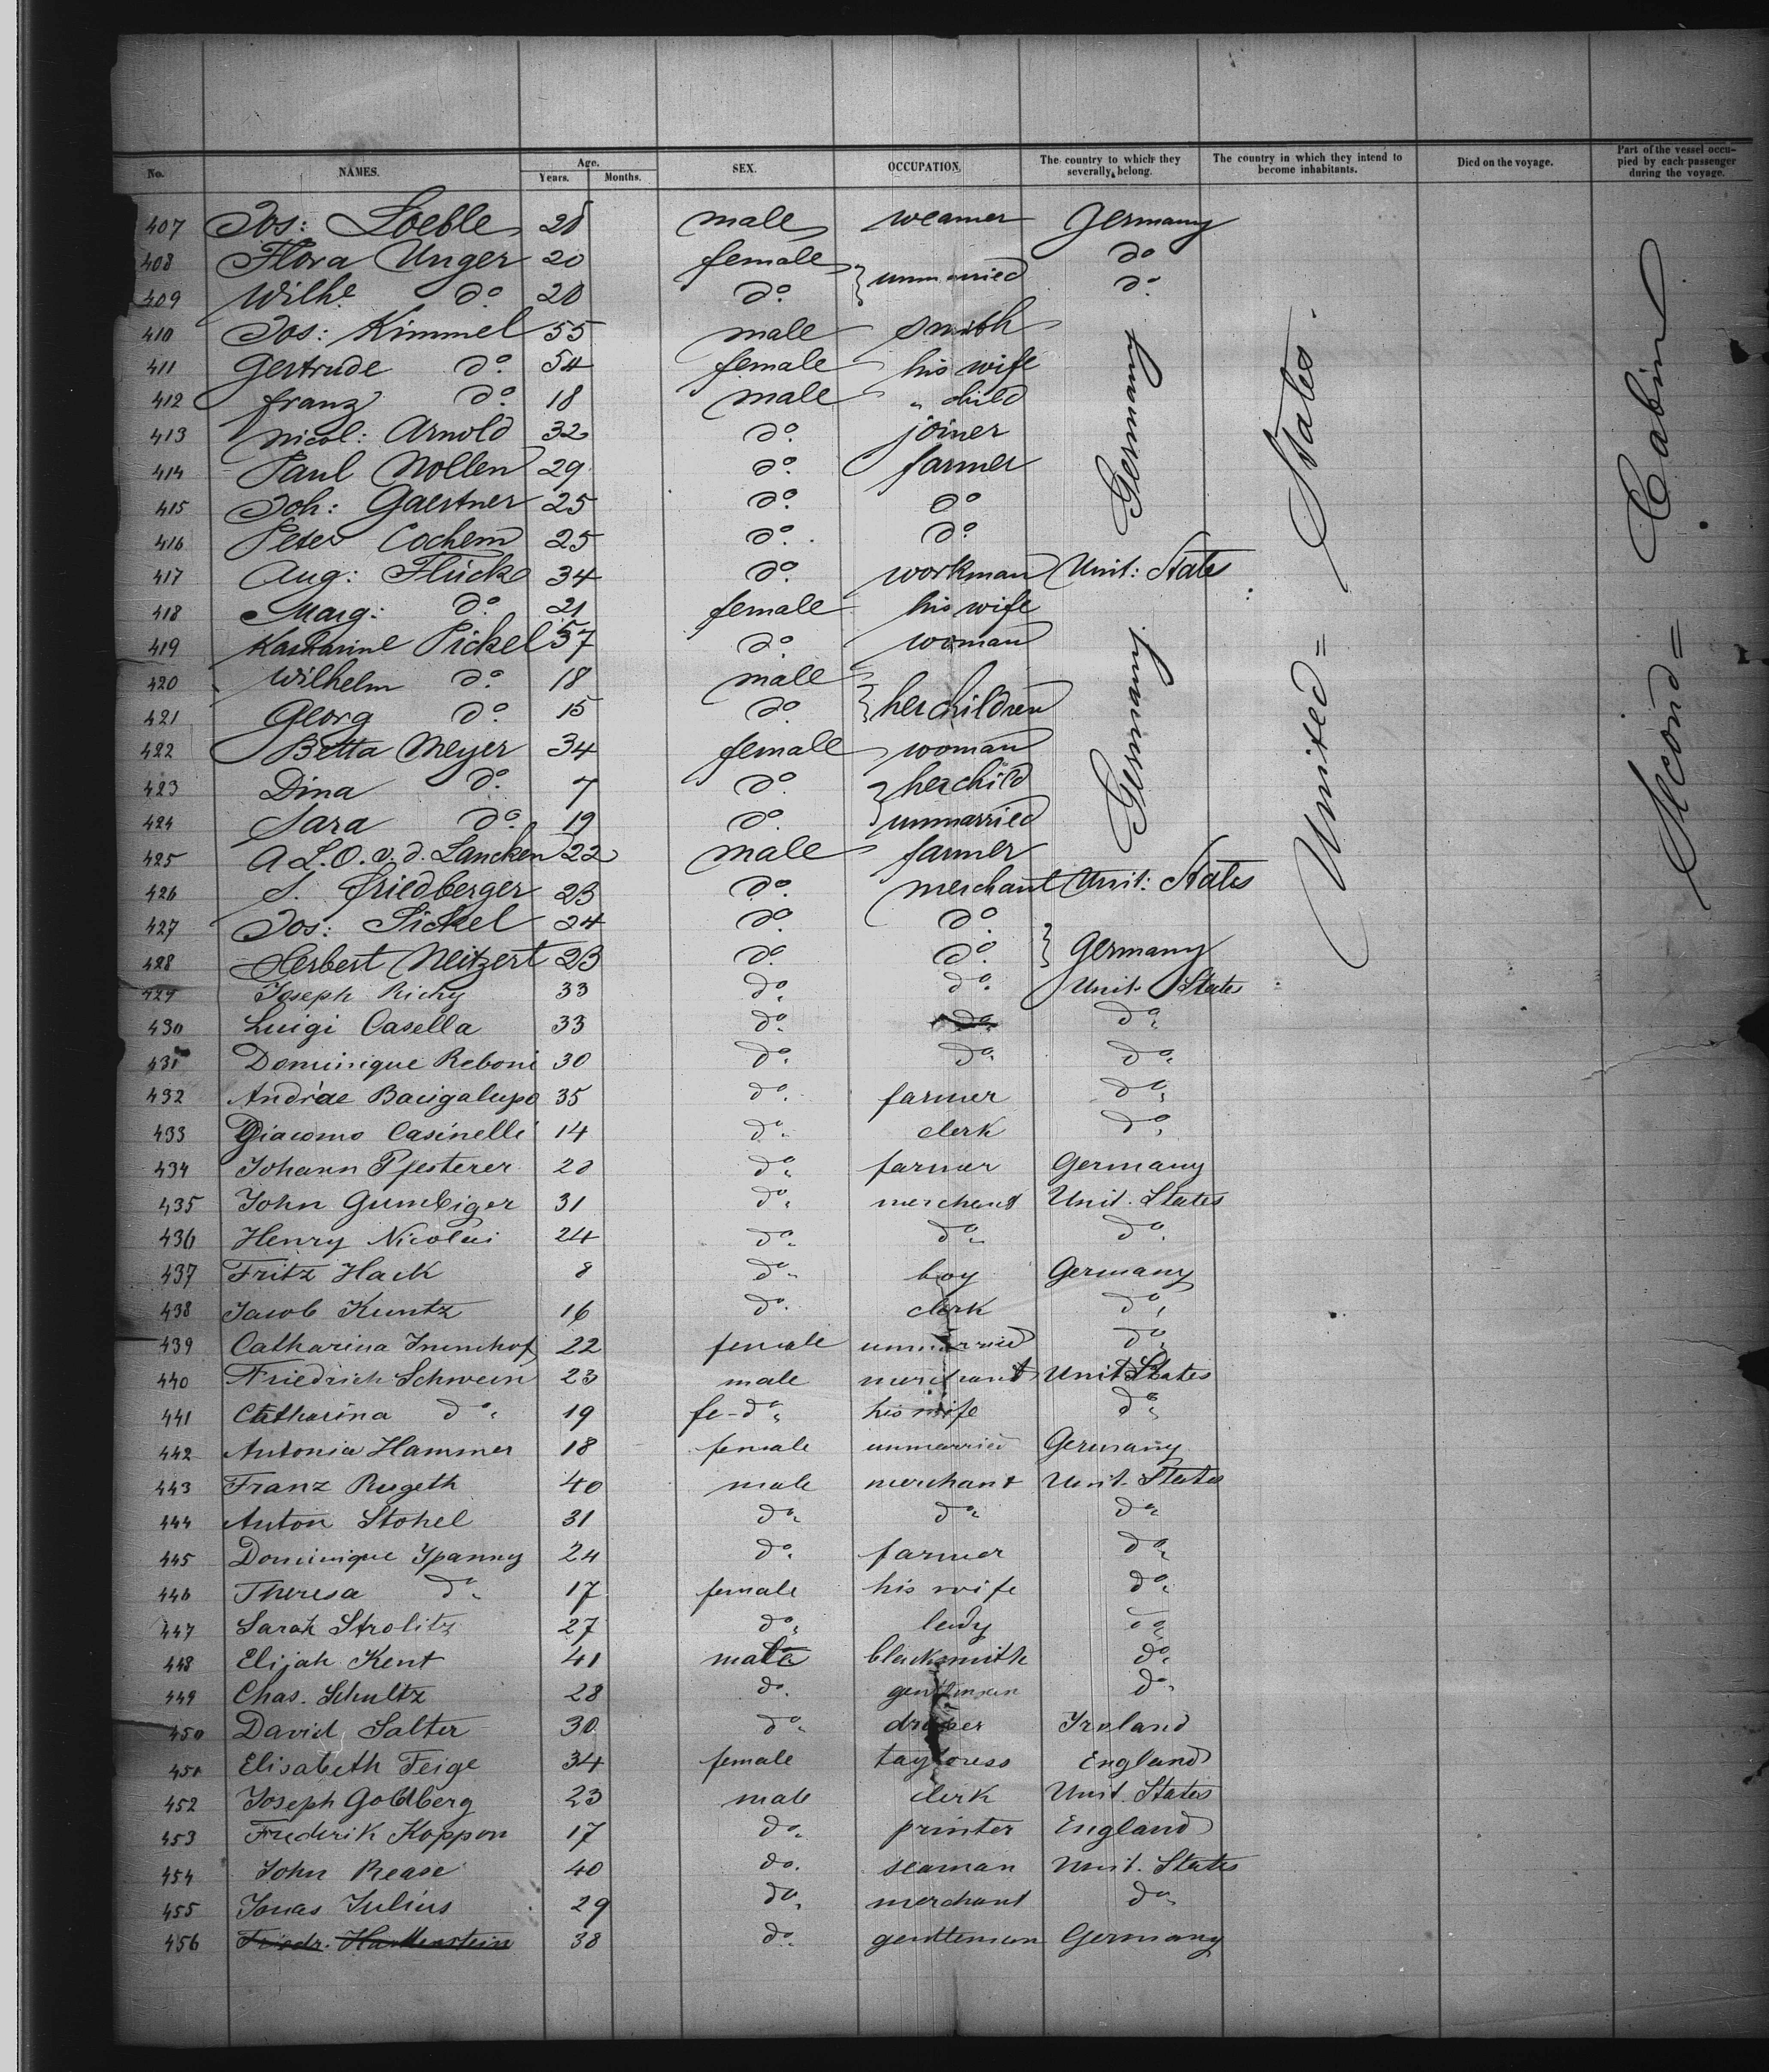 No. NAMES. Age. Years. Months. SEX. OCCUPATION. The country to which they severally belong. The country in which they intend to become inhabitants. Died on the voyage. Part of the vessel occupied by each passenger during the voyage.
407 Jos: Loeble 28 male weamer Germany
408 Flora Unger 20 female } unmarried do
409 Wilhe do 20 do do
410 Jos: Kimmel 55 male smith
411 Gertrude do 54 female his wife
412 Franz do 18 male " child
413 Nicol: Arnold 32 do joiner
414 Paul Nollen 29 do farmer
415 Joh: Gaertner 25 do do
416 Peter Cochem 25 do do
Germany
417 Aug: Flück 34 do workman Unit: States
418 Marg: do 21 female his wife
419 Katharine Pickel 57 do woman
420 Wilhelm do 18 male } her children
421 Georg do 15 do
422 Betta Meyer 34 female woman
423 Dina do 7 do her child
424 Sara do 19 do unmarried
425 A L. O. v. d. Lancken 22 male farmer
Germany
426 S. Friedberger 23 do merchant Unit: States
427 Jos: Pickel 24 do do
428 Herbert Neitzert 23 do do } Germany
429 Joseph Richy 33 do do Unit. States
430 Luigi Casella 33 do do do
431 Dominique Reboni 30 do do do
432 Andráe Bacigalupo 35 do farmer do
433 Giacomo Casinelli 14 do clerk do
434 Johann Pfesterer 20 do farmer Germany
435 John Gumbiger 31 do merchant Unit. States
436 Henry Nicolai 24 do do do
437 Fritz Hack 8 do boy Germany
438 Jacob Kuntz 16 do clerk do
439 Catharina Immhof 22 female unmarried do
440 Friedrich Schwein 23 male merchant Unit States
441 Catharina do 19 fe-do his wife do
442 Antonia Hammer 18 female unmarried Germany
443 Franz Rugeth 40 male merchant Unit. States
444 Anton Stohel 31 do do do
445 Dominique Ypanny 24 do farmer do
446 Theresa do 17 female his wife do
447 Sarah Strolitz 27 do lady do
448 Elijah Kent 41 male blacksmith do
449 Chas. Schultz 28 do gentleman do
450 David Salter 30 do draper Ireland
451 Elisabeth Feige 34 female tayloress England
452 Joseph Goldberg 23 male clerk Unit. States
453 Frederik Koppon 17 do printer England
454 John Rease 40 do seaman Unit. States
455 Jonas Julius 29 do merchant do
456 Friedr. Hallenstein 38 do gentleman Germany
United = States.
Second = Cabin